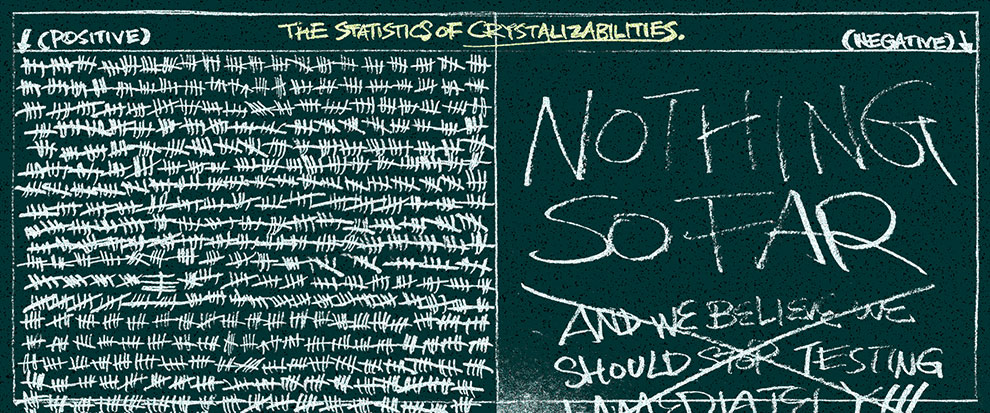 THE STATISTICS OF CRYSTALIZABILITIES.
(POSITIVE)
(NEGATIVE)
NOTHING
SO FAR
AND WE BELIEVE WE
SHOULD STOP TESTING
IMMEDIATELY!!!!